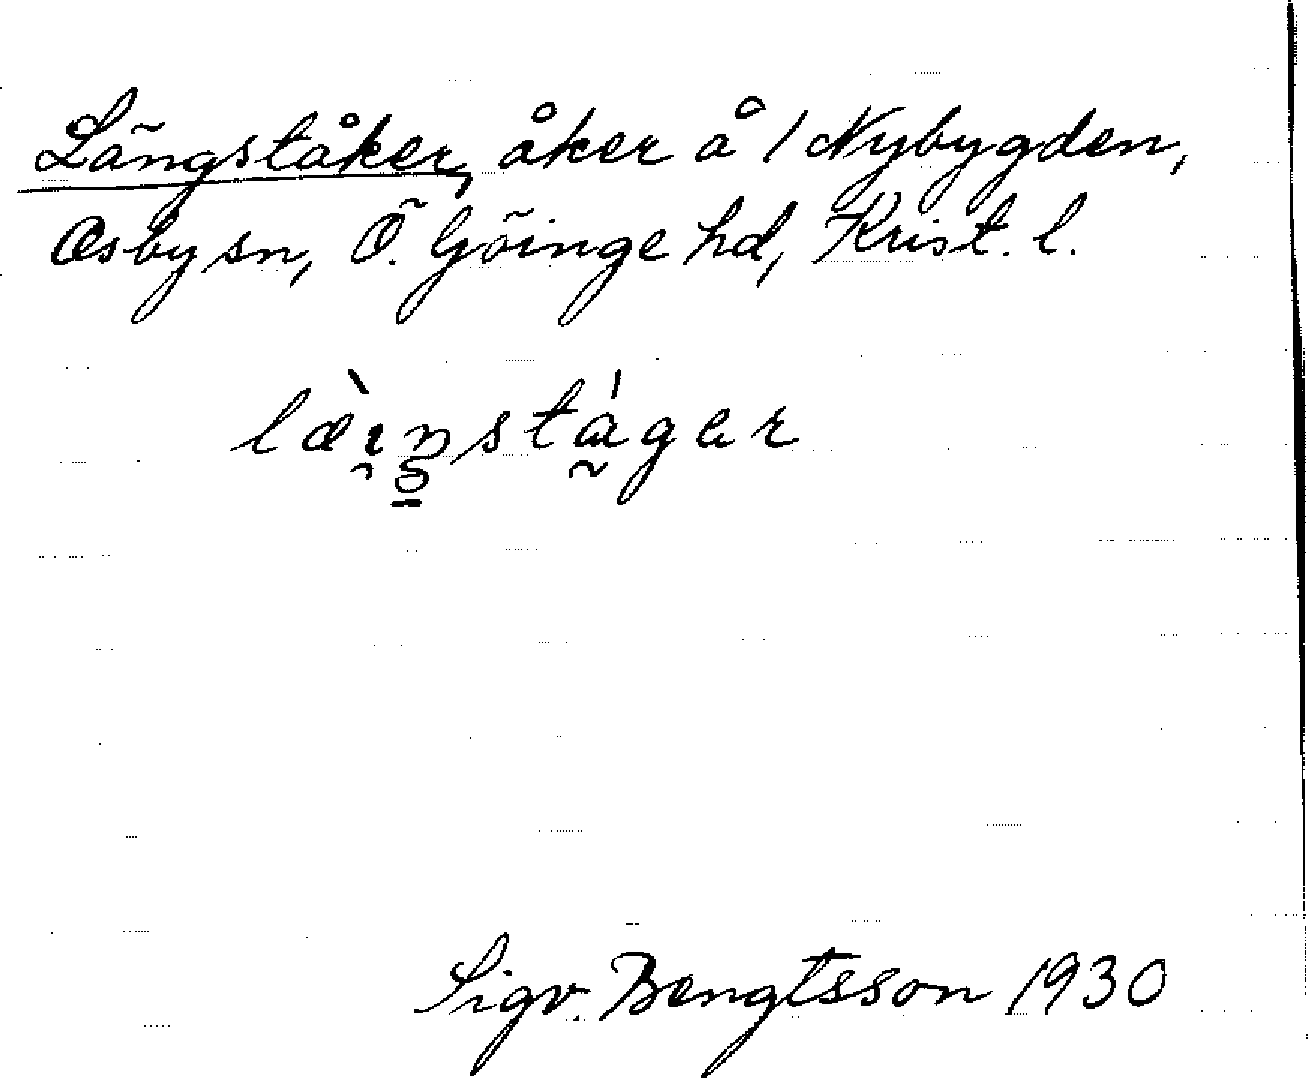 Längståker, åker å 1 Nybygden,
Osby sn, Ö. Göinge hd, Krist. l.
læ̀ıŋstáger
Sigv. Bengtsson 1930